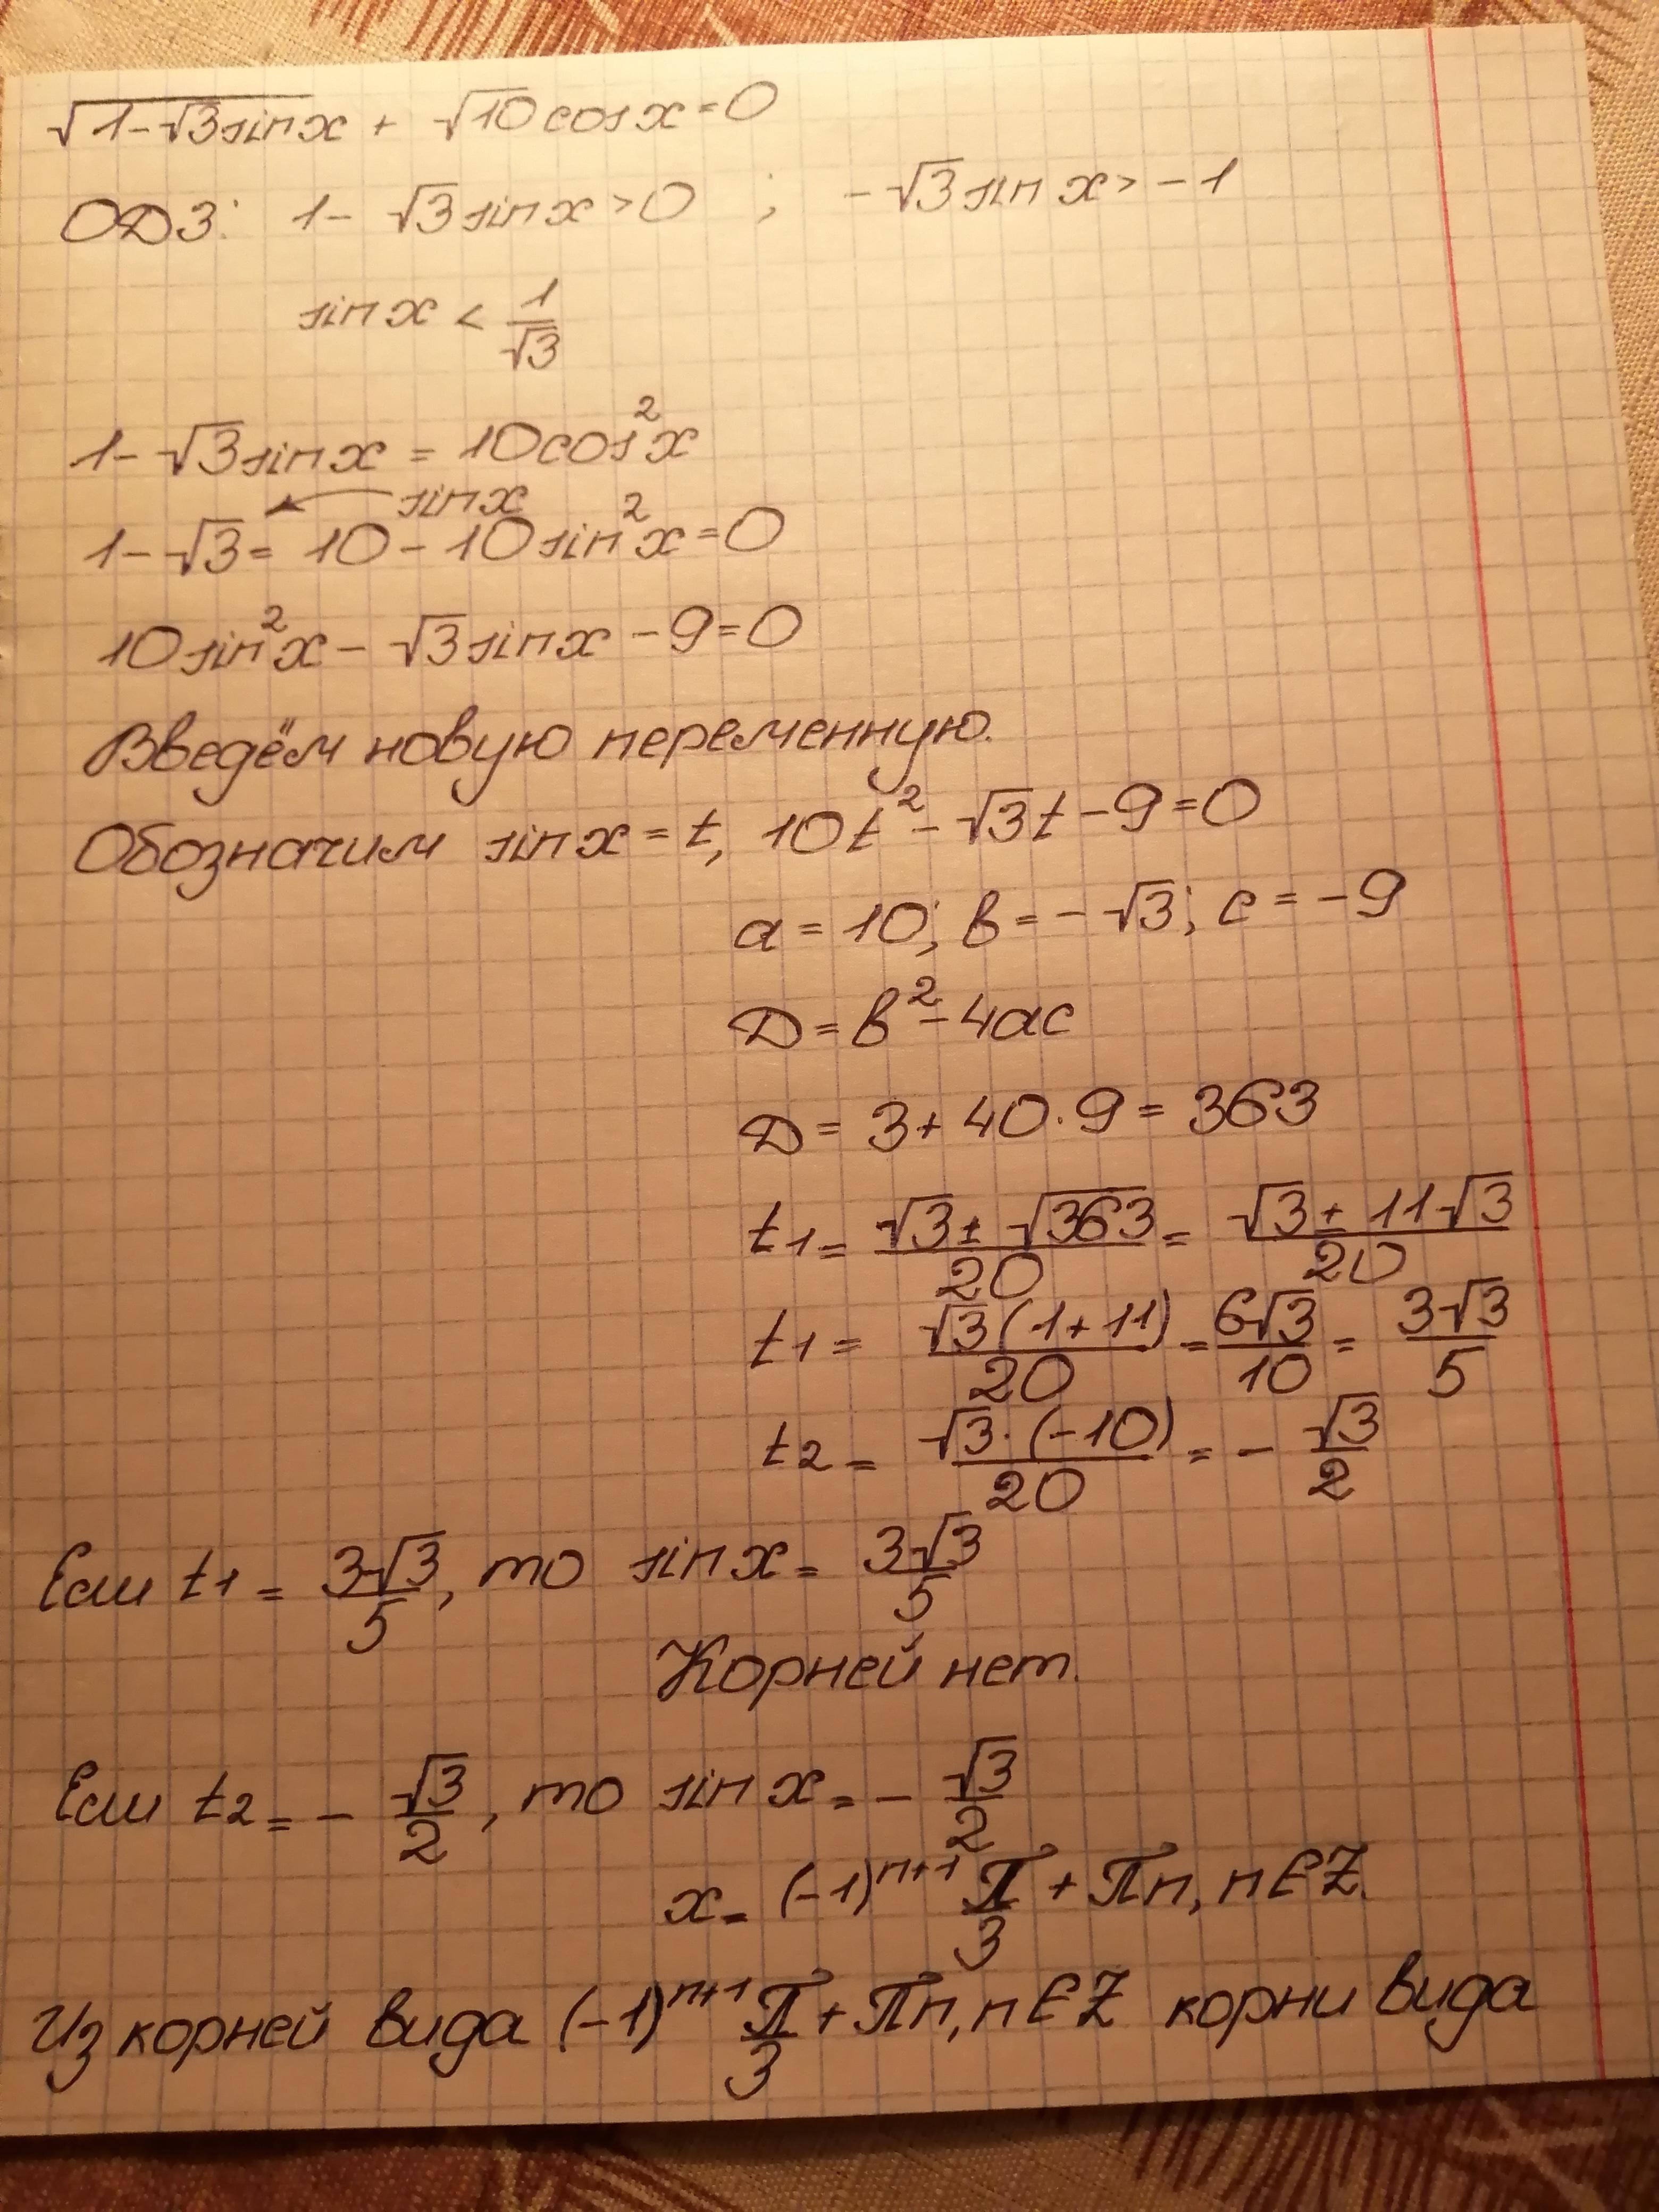 √1-√3sinx + √10cosx=0
ОДЗ: 1- √3sinx>0 ; -√3sinx>-1
sinx < 1/√3
1-√3sinx = 10cos²x
sinx
1-√3= 10-10sin²x=0
10sin²x-√3sinx-9=0
Введём новую переменную.
Обозначим sinx=t, 10t²-√3t-9=0
a=10; b=-√3; c=-9
Д=b²-4ac
Д= 3+40·9=363
t1= √3±√363/20 = √3±11√3/20
t1= √3(1+11)/20 = 6√3/10 = 3√3/5
t2= √3·(-10)/20 = -√3/2
Если t1= 3√3/5, то sinx= 3√3/5
Корней нет.
Если t2=-√3/2, то sinx=-√3/2
x= (-1)ⁿ⁺¹ П/3 + Пn, n∈Z.
Из корней вида (-1)ⁿ⁺¹ П/3 + Пn, n∈Z корни вида